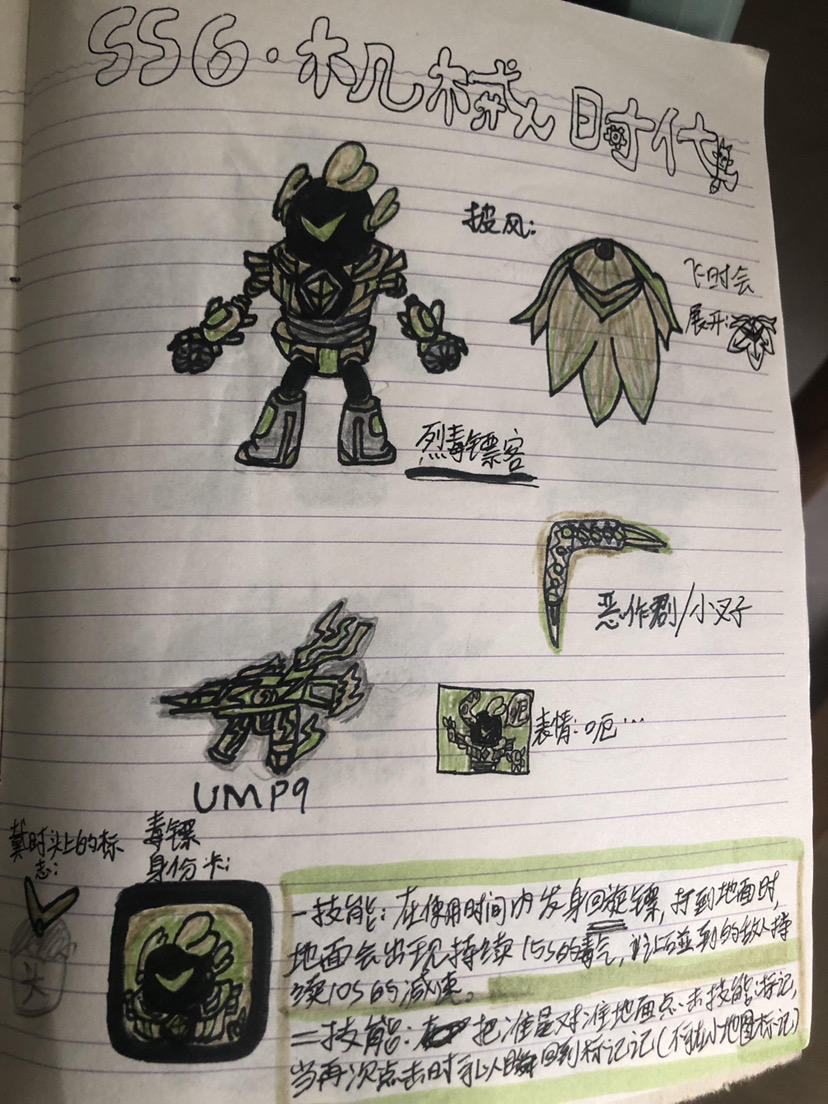 SS6·机械时代
披风:
飞时会
展开:
烈毒镖客
恶作剧/小叉子
UMP9
表情:呃…
呃
戴时头上的标
志:
头
毒镖
身份卡:
一技能:在使用时间内发身回旋镖,打到地面时,
地面会出现持续15S的毒气,让碰到的敌人持
续10S的减速。
二技能:把准星对准地面点击技能标记,
当再次点击时可以瞬回到标记记(有小地图标记)